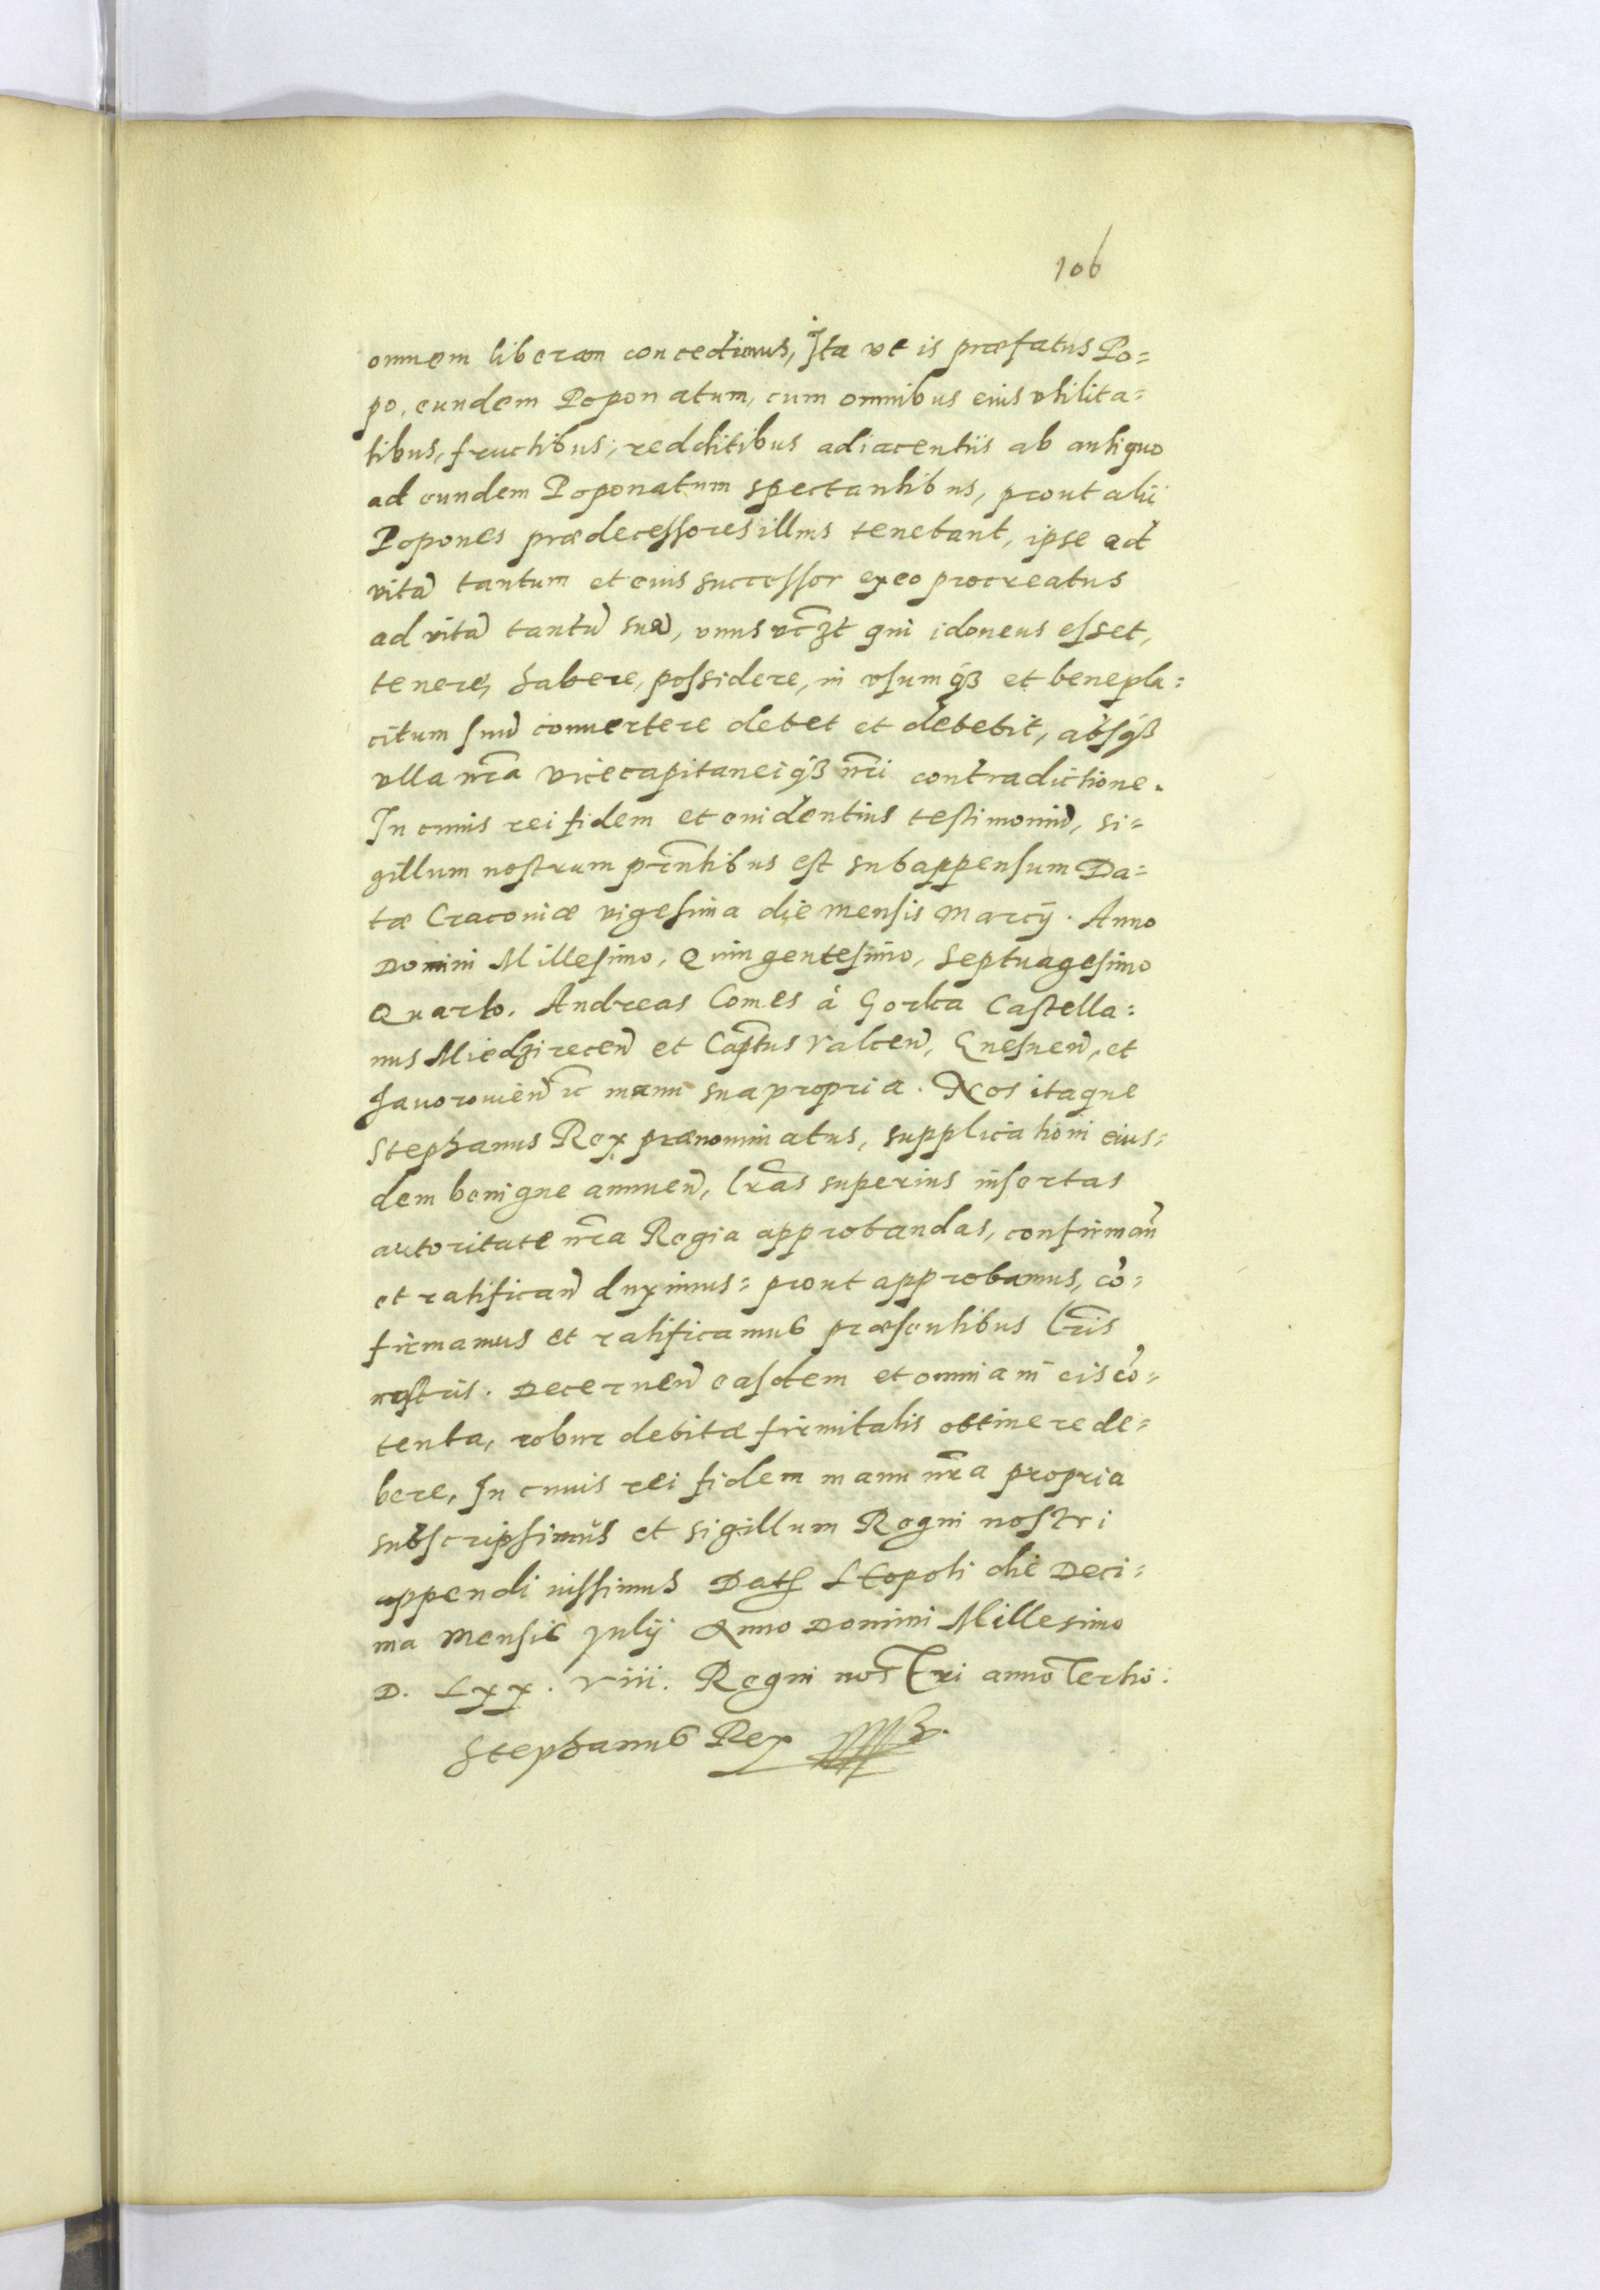 106
omnem liberam concedimus, Ita vt is præfatus Po=
po, eundem Poponatum, cum omnibus eius vtilita=
tibus, fructibus, redditibus adiacentiis ab antiquo
ad eundem Poponatum spectantibus, prout alii
Popones prædecessores illius tenebant, ipse ad
vitā tantum et eius successor ex eo procreatus
ad vitā tantū suā, vnus vczt qui idoneus esset,
tenere, habere, possidere, in vsumqz et benepla=
citum suū conuertere debet et debebit, absqz
vlla nra Vicecapitaneiqz nri contradictione.
In cuius rei fidem et euidentius testimoniū, si=
gillum nostrum pntibus est subappensum Da=
tæ Cracoviæ vigesima die mensis Marcij. Anno
Domini Millesimo, Quingentesimo, Septuagesimo
Quarto. Andreas Comes á Gorka Castella=
nus Miedzirecen̄ et Captus Valcen̄, Gnesnen̄, et
Javorovien̄ rc manu sua propria. Nos itaque
Stephanus Rex prænominatus, supplicationi eius=
dem benigne annuen̄, Lras superius insertas
autoritate nra Regia approbandas, confirman̄
et ratifican̄ duximus= prout approbamus, cō=
firmamus et ratificamus præsentibus Lris
nostris. Decernen̄ easdem et omnia in eis cō=
tenta, robur debitæ firmitatis obtinere de=
bere, In cuius rei fidem manu nra propria
subscripsimus et sigillum Regni nostri
appendi iussimus Dat Leopoli die Deci=
ma Mensis Julij Anno Domini Millesimo
D. Lxx. Viii. Regni nostri anno Tertio.
Stephanus Rex